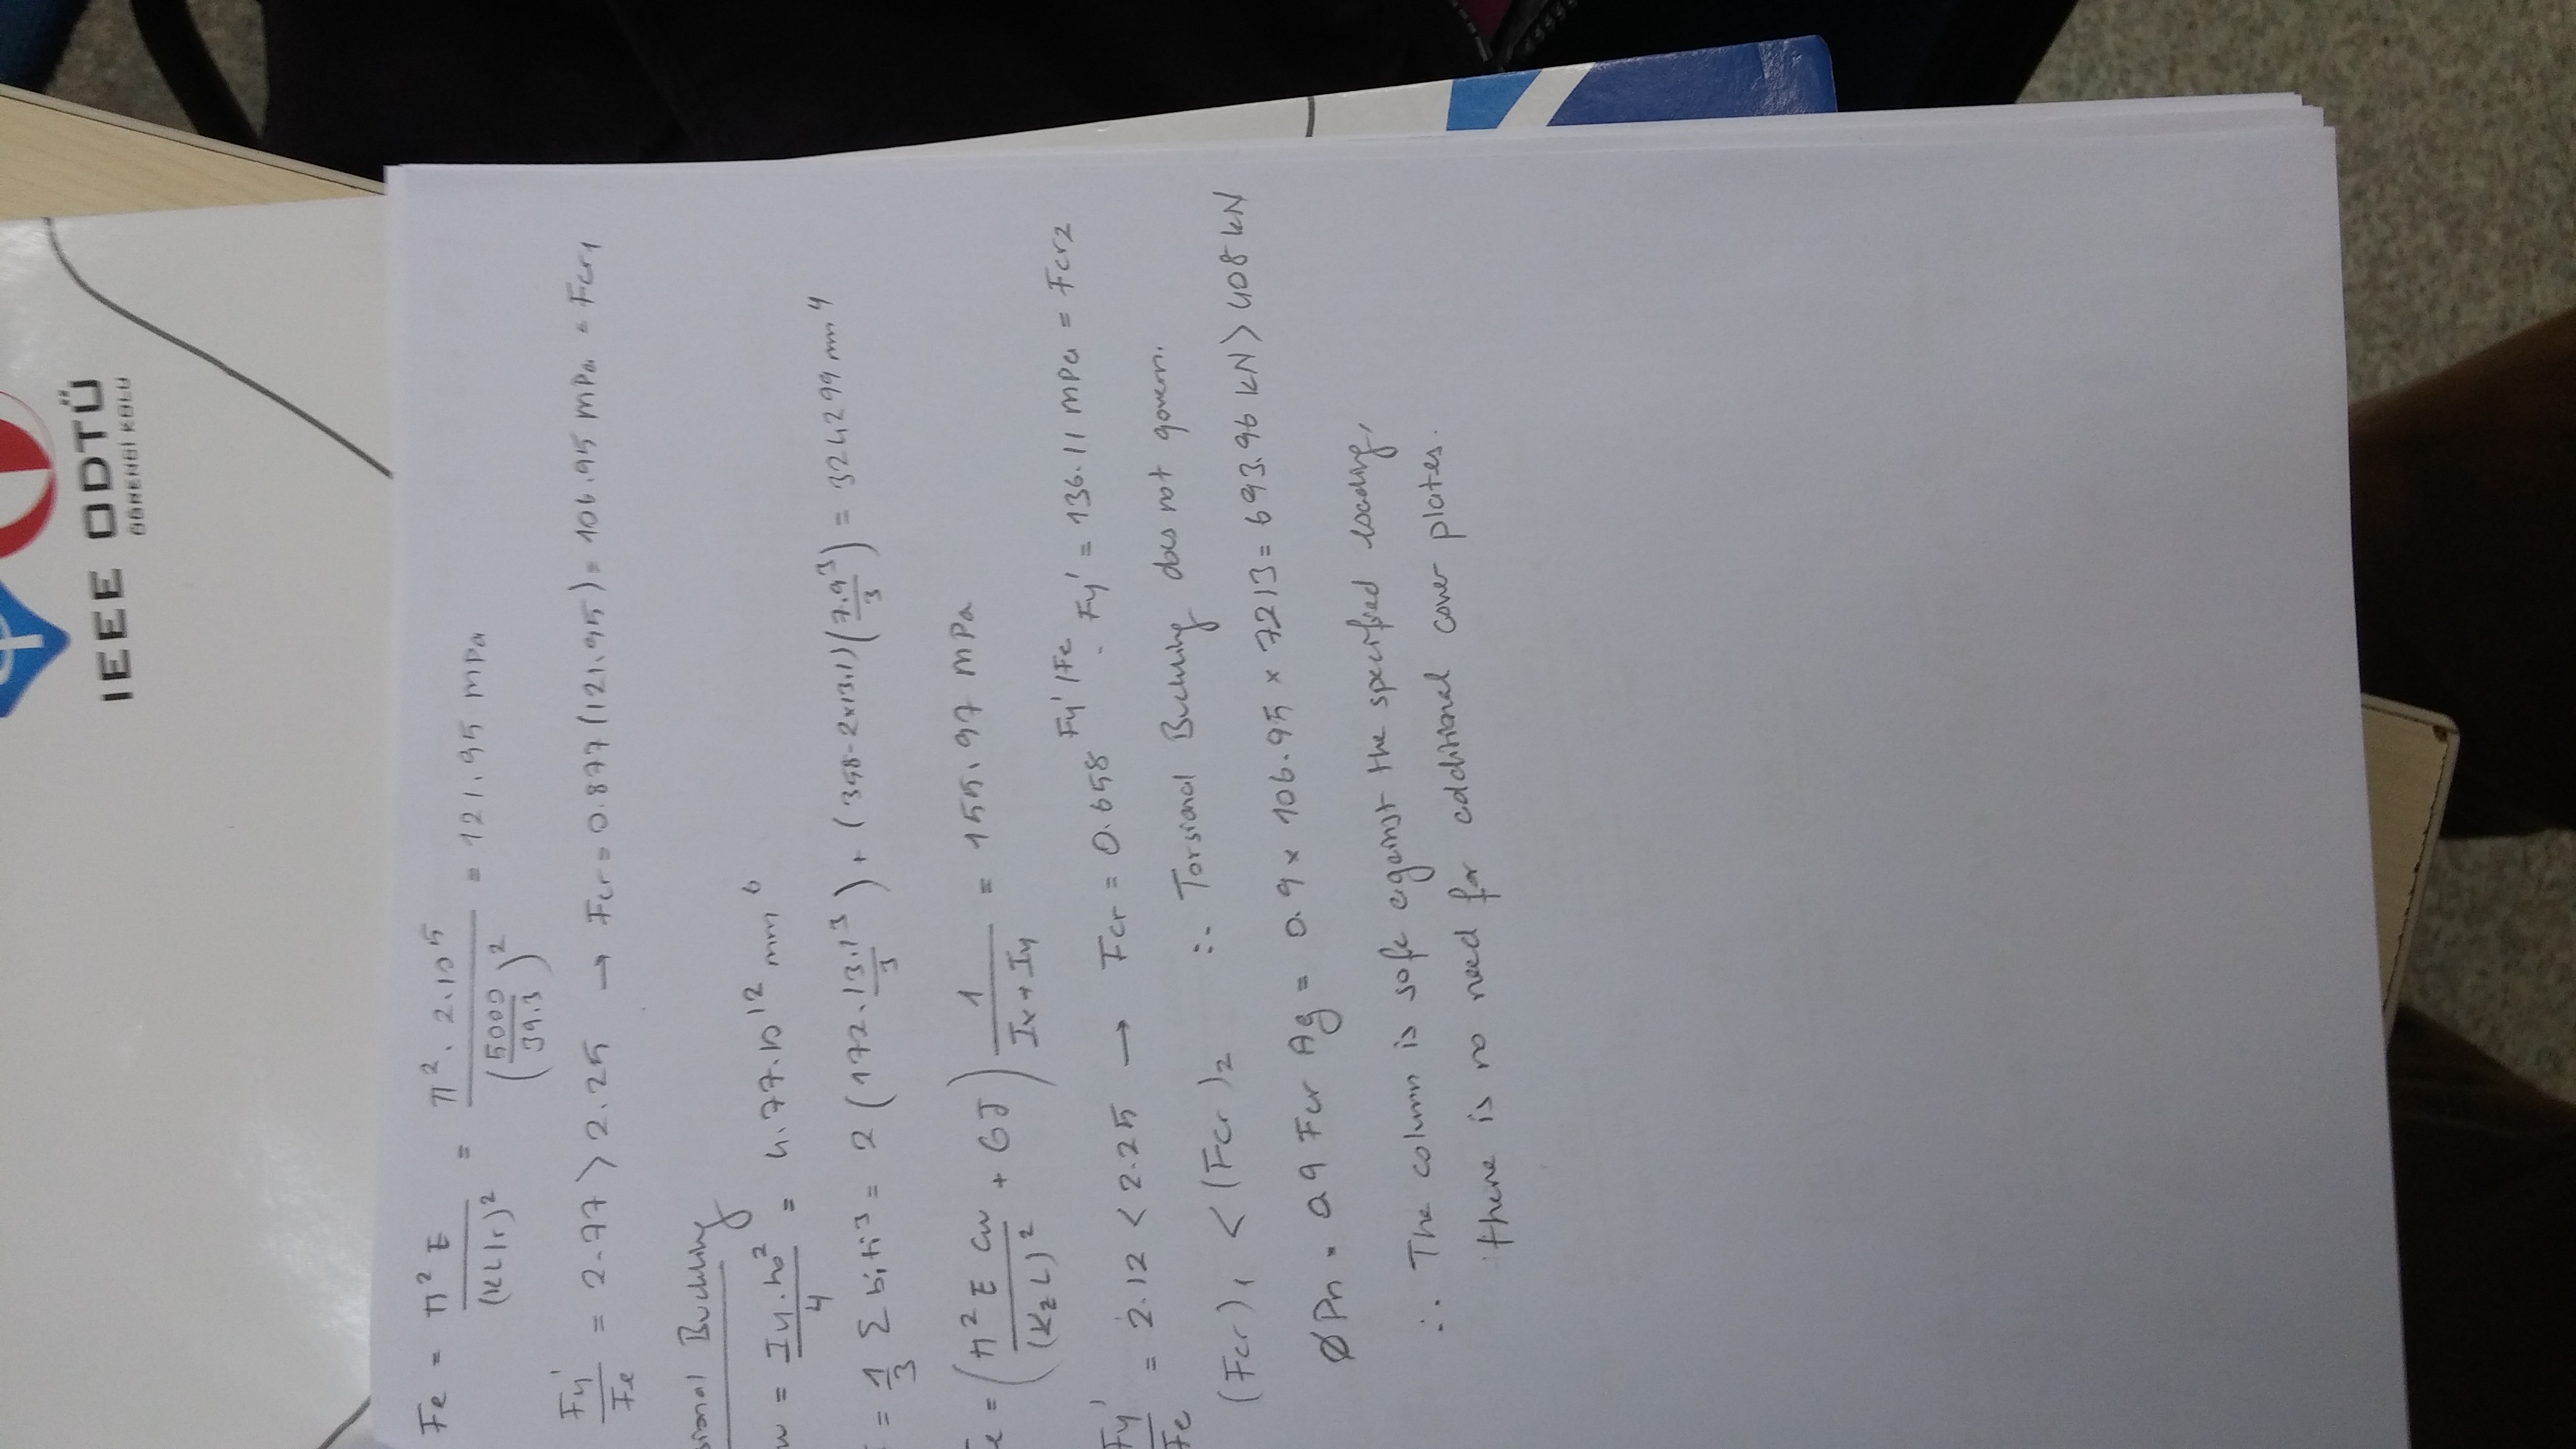 IEEE ODTÜ
ÖĞRENCİ KOLU
Fe = π² E / (KL/r)² = π² . 2.10⁵ / (5000/39.3)² = 121.95 mPa
Fy'/Fe = 2.77 > 2.25 → Fcr = 0.877 (121.95) = 106.95 mPa = Fcr₁
sional Buckling
w = Iy.ho²/4 = 4.77.10¹² mm⁶
= 1/3 Σ biti³ = 2 (172.13.1³/3) + (358-2x13.1) (7.9³/3) = 324299 mm⁴
e = (π² E Cw / (KzL)² + GJ) 1/(Ix+Iy) = 155.97 mPa
Fy'/Fe = 2.12 < 2.25 → Fcr = 0.658^(Fy'/Fe) . Fy' = 136.11 mPa = Fcr2
(Fcr)₁ < (Fcr)₂ ∴ Torsional Buckling does not govern.
ØPn = 0.9 Fcr Ag = 0.9 x 106.95 x 7213 = 693.96 kN > 408 kN
∴ The column is safe against the specified loading,
there is no need for additional cover plates.